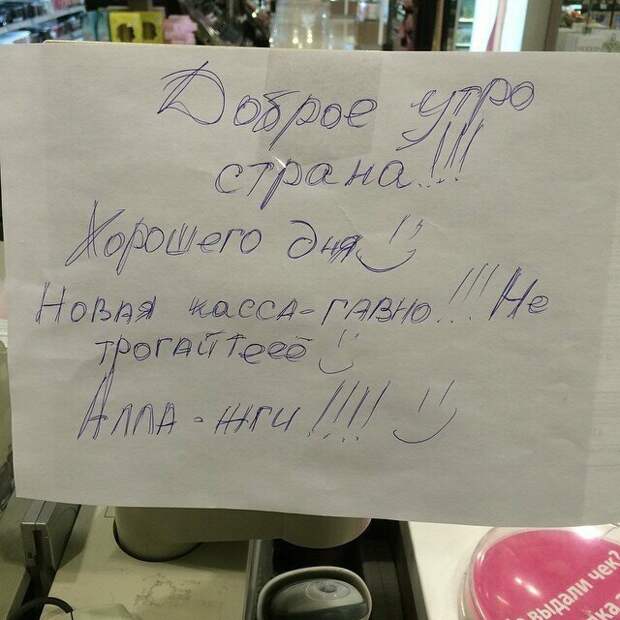 Доброе утро
страна!!!
Хорошего дня
Новая касса-гавно!!! Не
трогайтееё
Алла-жги!!!!
выдали чек?
ка